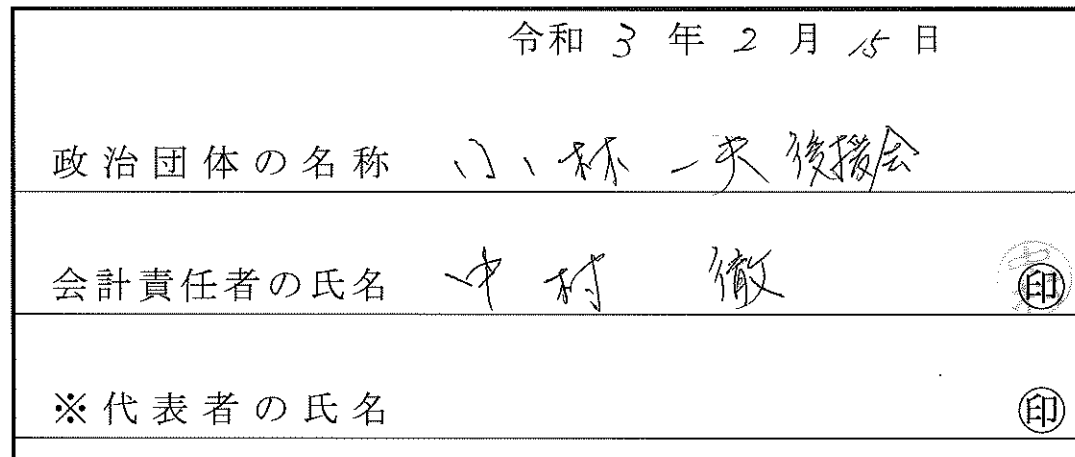 令和 3 年 2 月 15 日
政治団体の名称 小林一夫後援会
会計責任者の氏名 中村 徹 印
※代表者の氏名 印